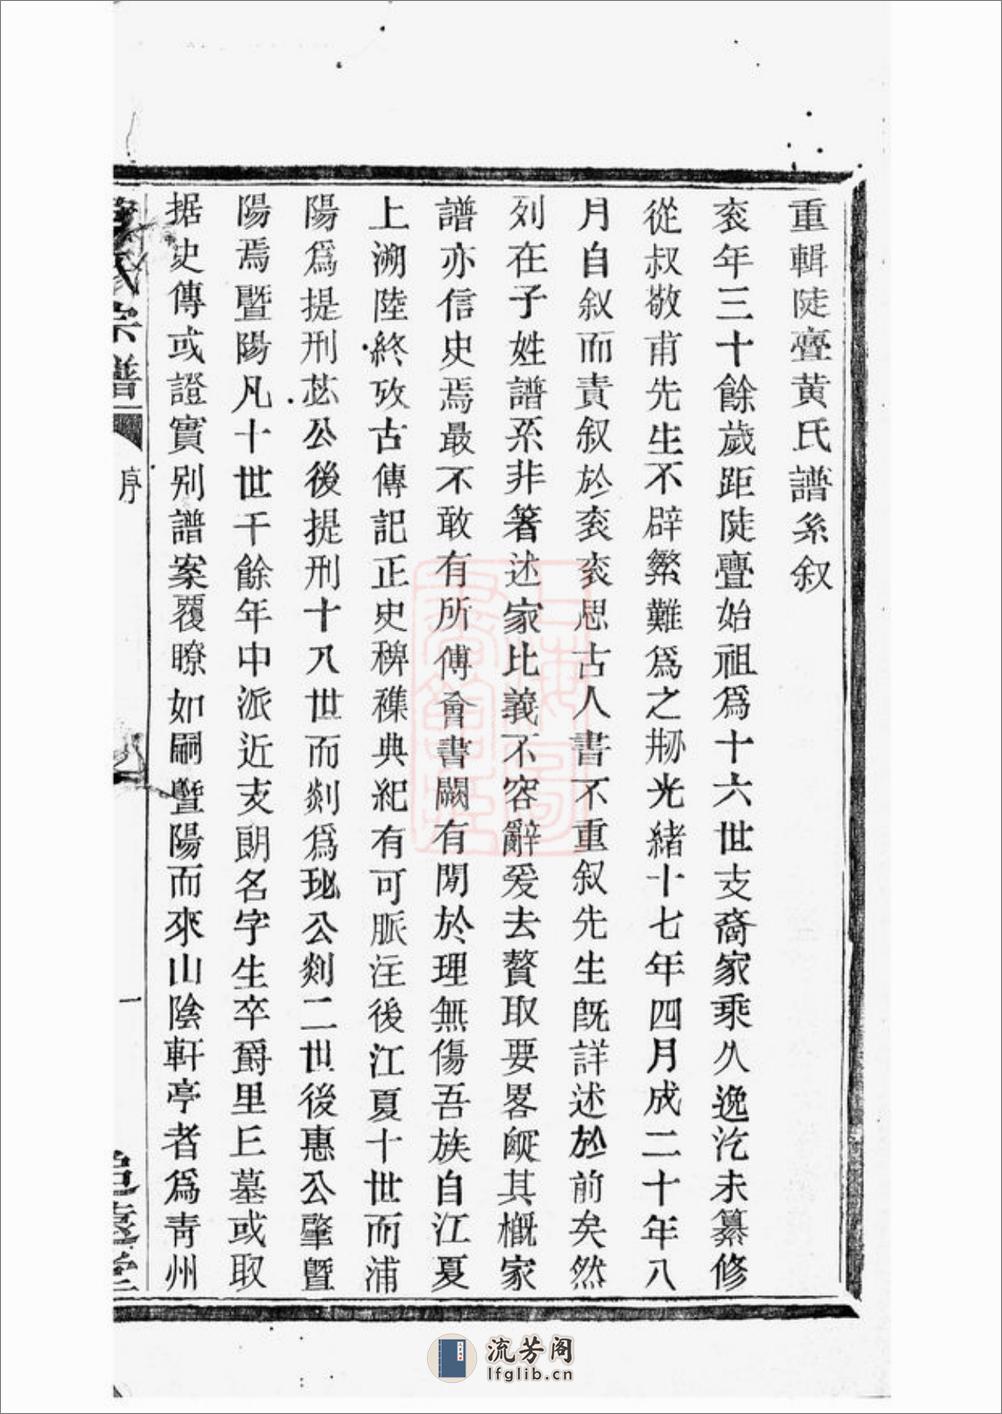 重輯陡亹黄氏譜系叙
衮年三十餘歲距陡亹始祖爲十六世支裔家乘久逸汔未纂修
從叔敬甫先生不辟繁難爲之刱光緒十七年四月成二十年八
月自叙而責叙於衮衮思古人書不重叙先生旣詳述於前矣然
列在子姓譜系非箸述家比義不容辭爰去贅取要畧縱其概家
譜亦信史焉最不敢有所傅會書闕有閒於理無傷吾族自江夏
上溯陸終攷古傳記正史稗襍典紀有可脈注後江夏十世而浦
陽爲提刑苾公後提刑十八世而剡爲玭公剡二世後惠公肇暨
陽焉暨陽凡十世千餘年中派近支朗名字生卒爵里丘墓或取
据史傳或證實别譜案覆瞭如嗣暨陽而來山陰軒亭者爲青州
氏宗譜
序
一
追遠堂
流芳阁
lfglib.cn